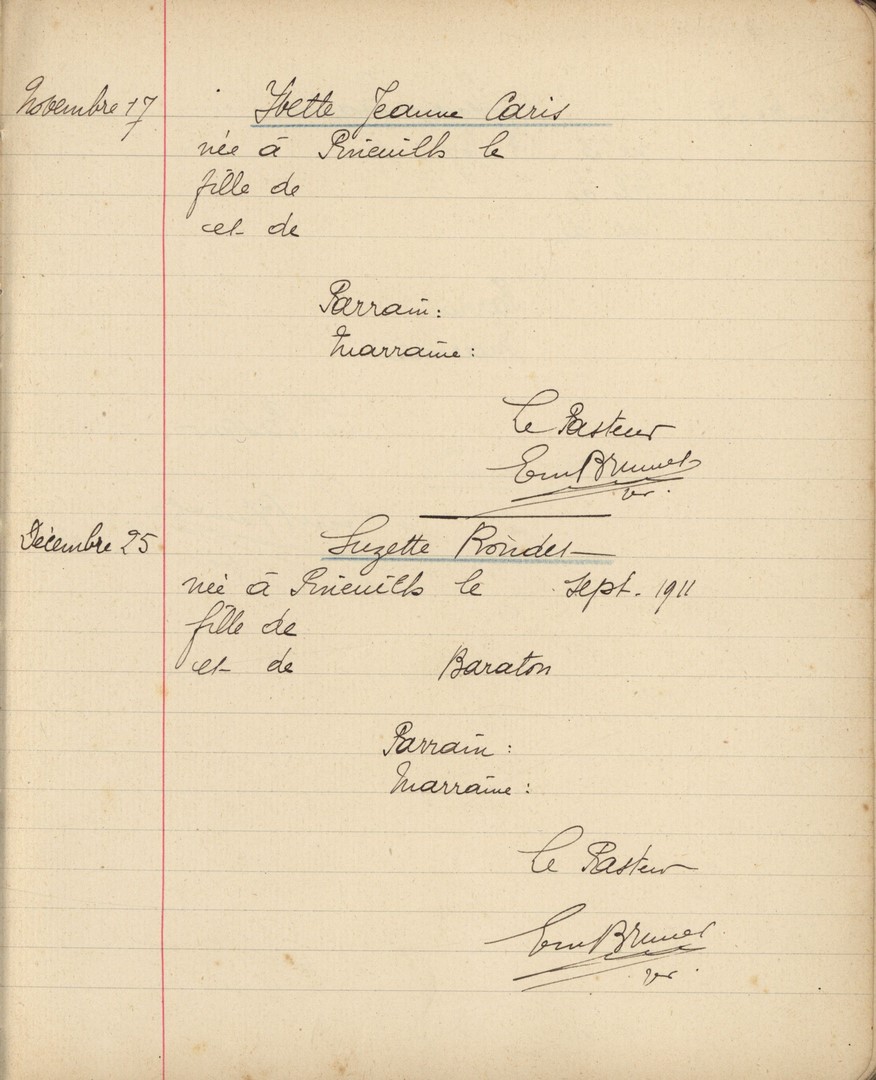 Novembre 17
Yvette Jeanne Caris
née à Pineuilh le
fille de
et de
Parrain:
Marraine:
Le Pasteur
Em Brunet
Décembre 25
Suzette Rondet
née à Pineuilh le Sept. 1911
fille de
et de Baraton
Parrain:
Marraine:
Le Pasteur
Em Brunet